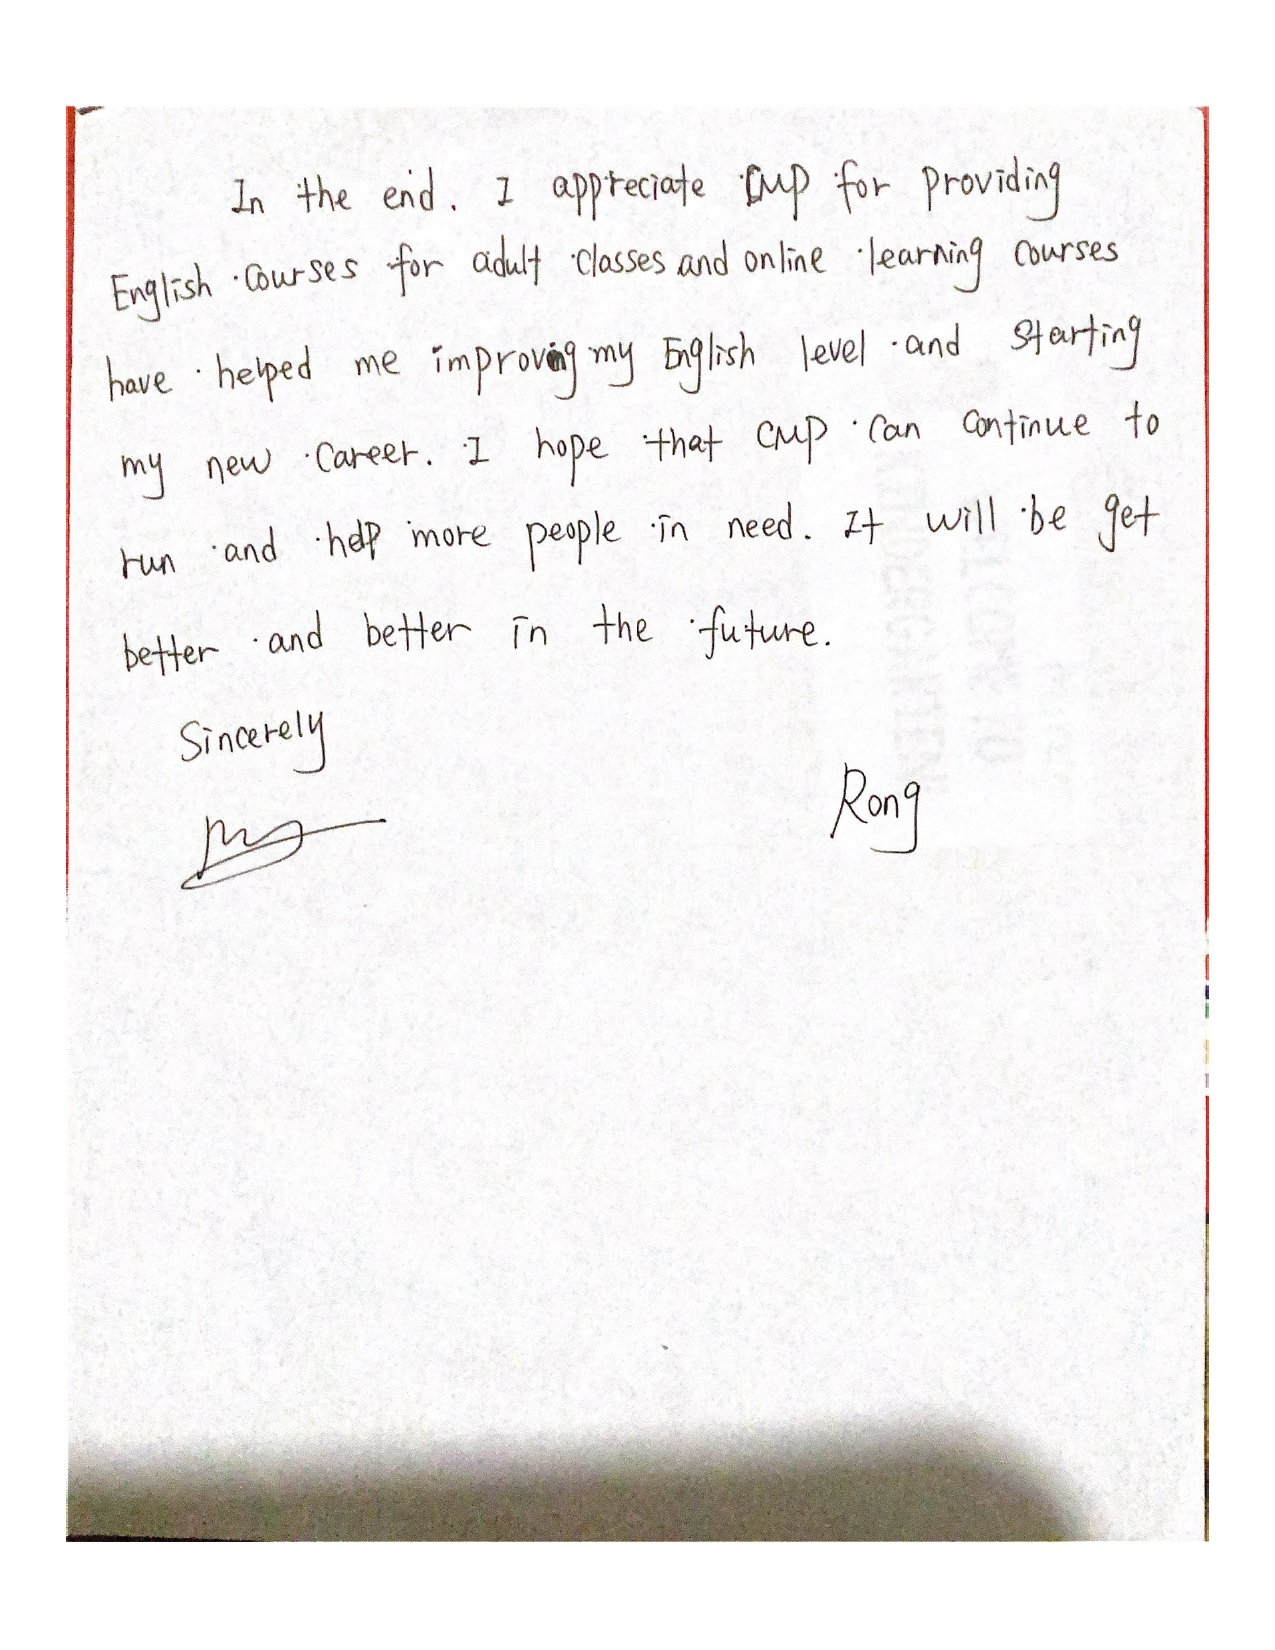 In the end. I appreciate CMP for providing
English courses for adult classes and online learning courses
have helped me improving my English level and starting
my new career. I hope that CMP can continue to
run and help more people in need. It will be get
better and better in the future.
Sincerely
Rong